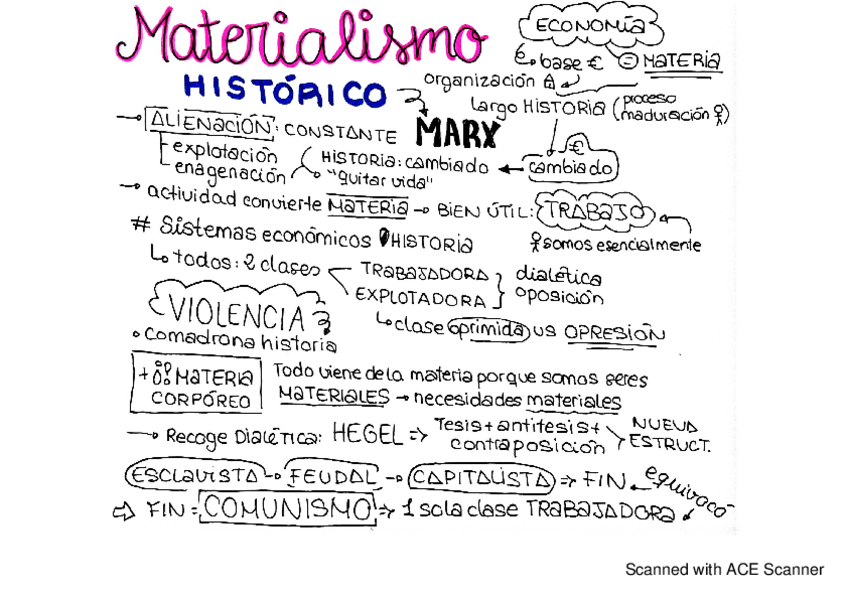 Materialismo
HISTÓRICO
ECONOMÍA
base € = MATERIA
organización
largo HISTORIA (proceso maduración)
MARX
€ cambiado
→ ALIENACIÓN: CONSTANTE
explotación
enagenación
HISTORIA: cambiado
"quitar vida"
→ actividad convierte MATERIA → BIEN ÚTIL: TRABAJO
somos esencialmente
# Sistemas económicos HISTORIA
todos: 2 clases
TRABAJADORA
EXPLOTADORA
dialética
oposición
clase oprimida vs OPRESIÓN
VIOLENCIA
• comadrona historia
+ MATERIA
CORPÓREO
Todo viene de la materia porque somos seres
MATERIALES → necesidades materiales
→ Recoge Dialética: HEGEL ⇒ Tesis + antítesis +
contraposición
NUEVA
ESTRUCT.
ESCLAVISTA → FEUDAL → CAPITALISTA ⇒ FIN
equivocó
⇨ FIN = COMUNISMO ⇒ 1 sola clase TRABAJADORA
Scanned with ACE Scanner